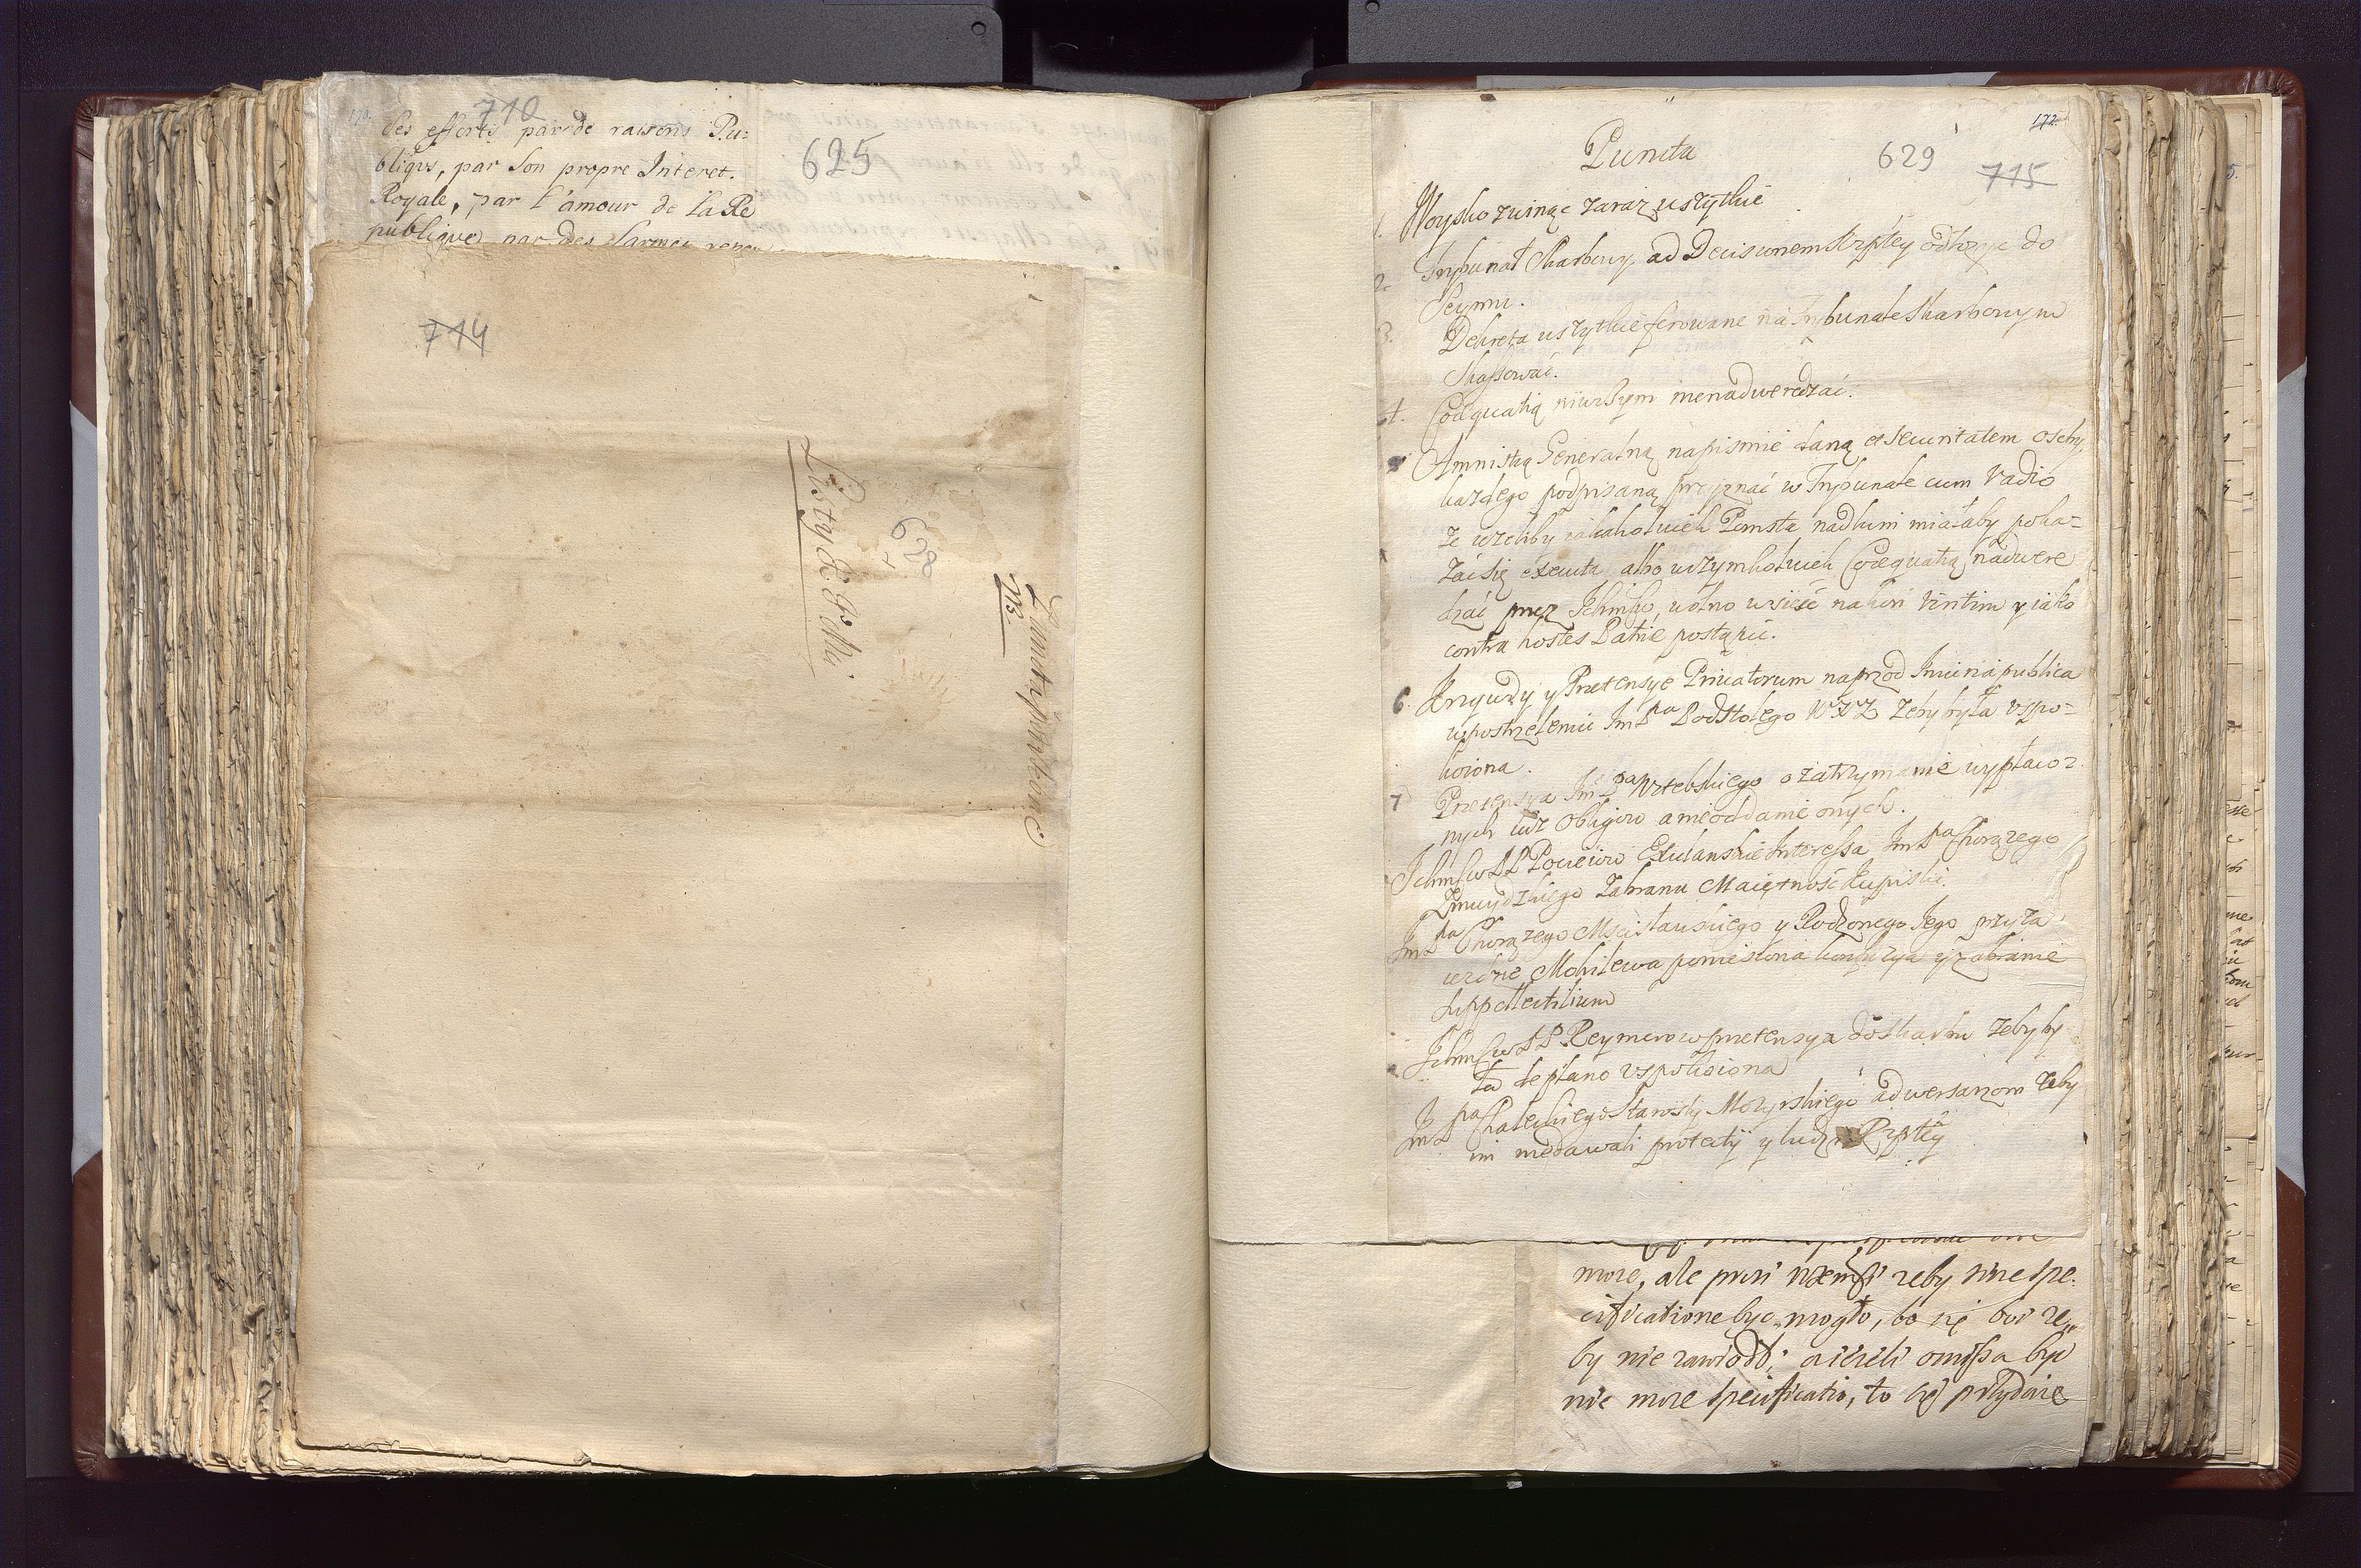 170.
710
les efforts par de raisons Pu:
bliqvs, par Son propre Interet.
Royale, par l'amour de la Re
publique par des
625
714
Listy & &
628
Puncta
172.
629
715
1. Woysko zwinąc zaraz wszytkie
2. Trybunał Skarbowy ad Decisionem Rzptey odłozyc do
Seymu.
3. Dekreta wszytkie ferowane na Trybunale Skarbowym
Skassować.
4. Coæquatią niwczym nienadweredzać.
Amnistią Generalną napismie daną et securitatem osoby
kazdego podpisaną przyznać w Trybunale cum vadio
ze iezeliby iakakolwiek Pomsta nadkim miałaby poka=
zać się executa albo wczymkolwiek Coæquatią nadwere
dzać przez Ichmsc, wolno wsieść nakon viritim y iako
contra hostes Patriæ postąpić.
6. Krzywdy y Prætensye Privatorum naprzod Iniuria publica
wpostrzeleniu ImPna Podstolego WXL zeby była vspo=
koiona.
7 Pretensya ImPna o zatrzymanie wypłaco=
nych iuz obligow a nieoddanie onych.
Ichmsciow PP Pocieiow Exulanskie Interessa ImPna Chorązego
Zmuydzkiego Zabranu Maiętnosc Kupiski.
ImPna Chorązego Mscisławskiego y Rodzonego Iego przy za
iezdzie Mohilewa poniesiona konfuzya y zabranie
suppellectilium
Ichmsciow PP. Reymerow prætensya do skarbu zeby by
ła de plano vspokoiona
ImPna Chaleckiego Starosty Mozyrskiego adwersarzom zeby
im niedawali protectij y ludzi Rzptey
moze, ale prosi rzemsi zeby sine spe:
cificatione byc mogło, bo się boi ze„
by nie zawiodł; a iezeli omissa byc
nie moze specificatio, to się przydaie